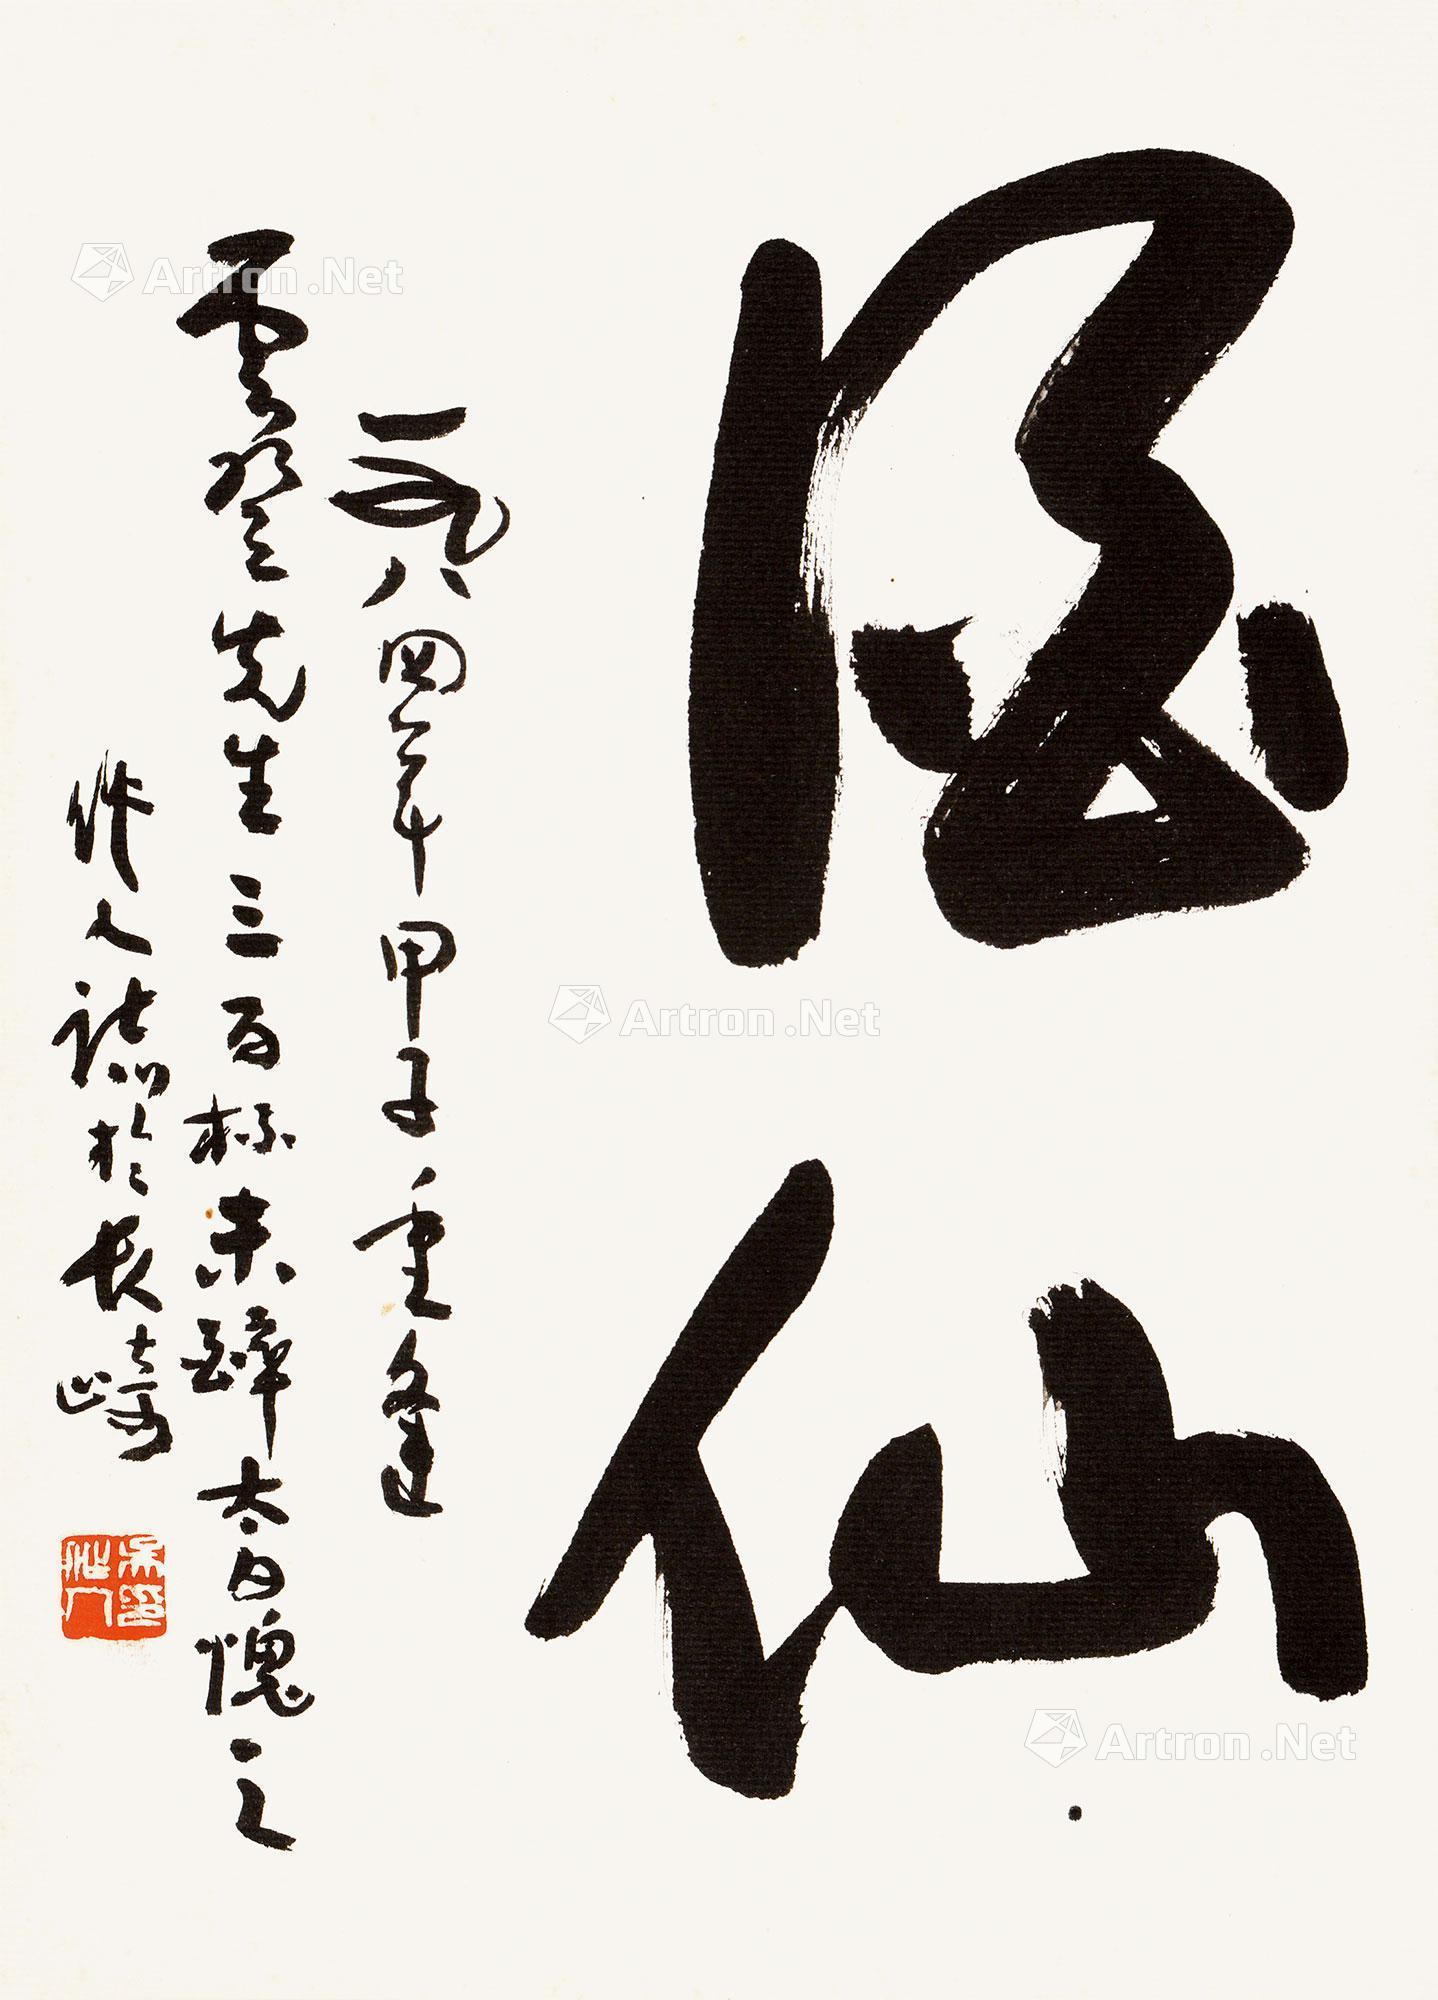 酒仙
一九八四年甲子重逢
云登先生三百杯未醉太白愧之
作人誌於長崎
吳作人印
Artron.Net
Artron.Net
Artron.Net